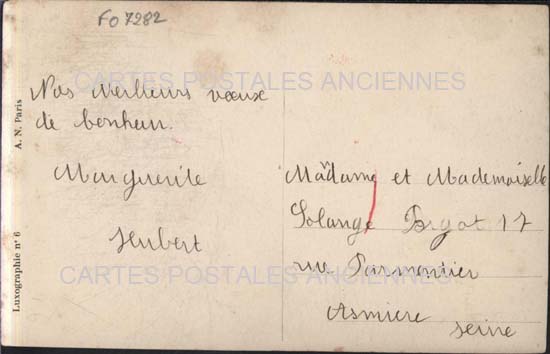 FO 7282
CARTES POSTALES ANCIENNES
Nos meilleurs voeux
de bonheur.
Marguerite
Hubert
Madame et Mademoiselle
Solange 17
rue Parmentier
Asniere
Seine
CARTES POSTALES ANCIENNES
Luxographie n° 6 A. N. Paris